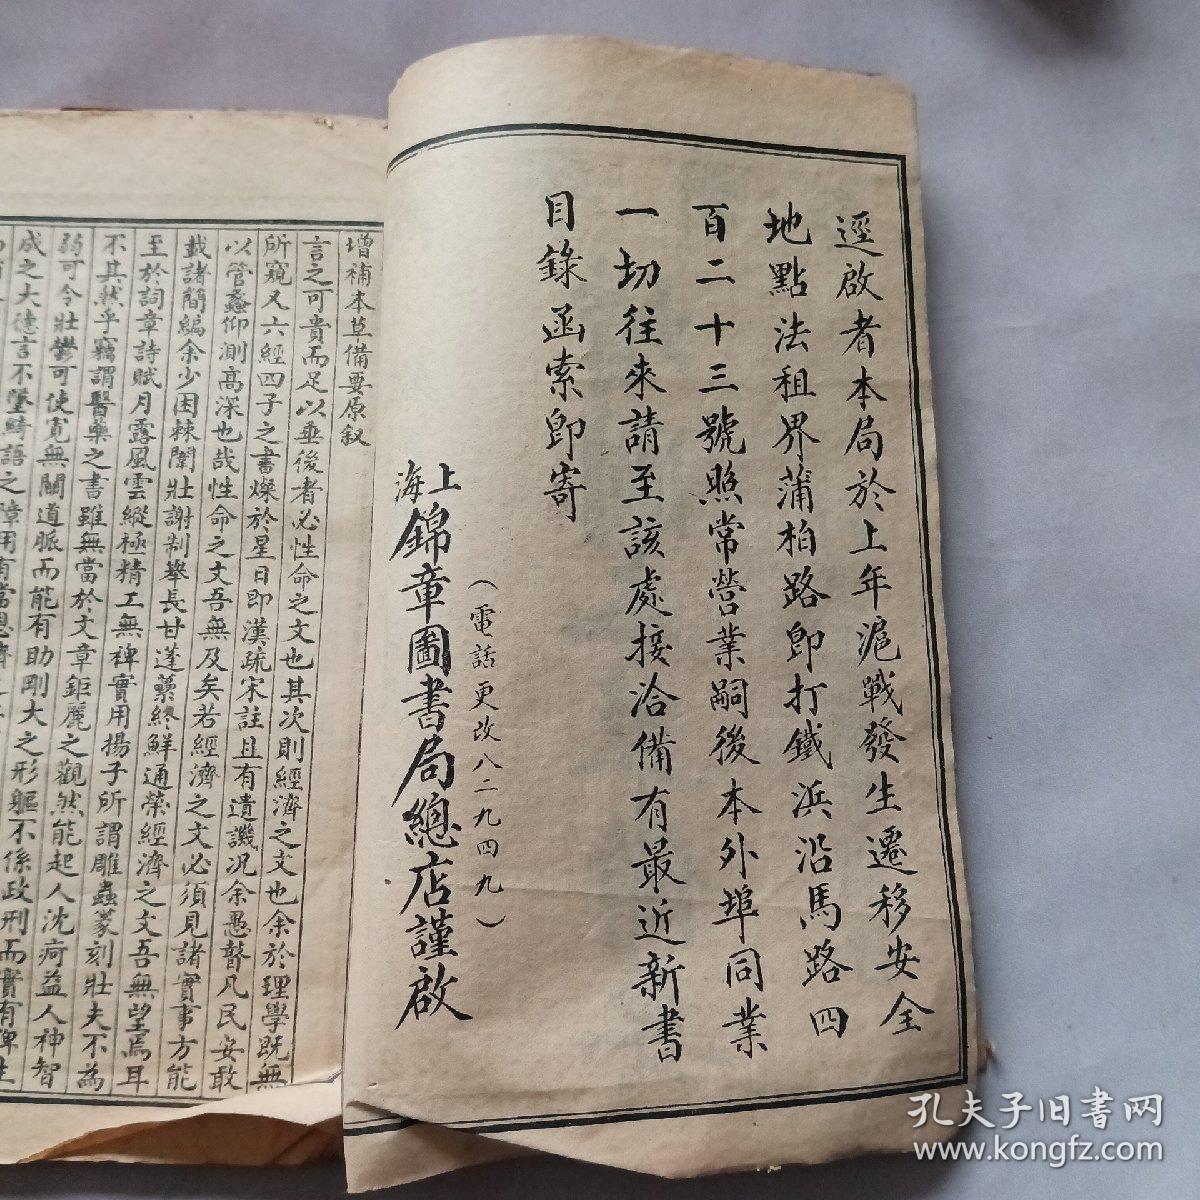 逕啟者本局於上年滬戰發生遷移安全
地點法租界蒲柏路即打鐵浜沿馬路四
百二十三號照常營業嗣後本外埠同業
一切往來請至該處接洽備有最近新書
目錄函索即寄
（電話更改八二九四九）
上海
錦章圖書局總店謹啟
增補本草備要原叙
言之可貴而足以垂後者必性命之文也其次則經濟之文也余於理學既無
所窺又六經四子之書燦於星日即漢疏宋註且有遺譏況余愚瞽凡民安敢
以管蠡仰測高深也哉性命之文吾無及矣若經濟之文必須見諸實事方能
載諸簡編余少困棘闈壯謝制舉長甘蓬藜終鮮通榮經濟之文吾無望焉耳
至於詞章詩賦月露風雲縱極精工無裨實用揚子所謂雕蟲篆刻壯夫不為
不其然乎竊謂醫藥之書雖無當於文章鉅麗之觀然能起人沈疴益人神智
弱可令壯鬱可使寬無關道脈而能有助剛大之形軀不係政刑而實有裨生
成之大德言不墜綺語之障用有當
孔夫子旧书网
www.kongfz.com